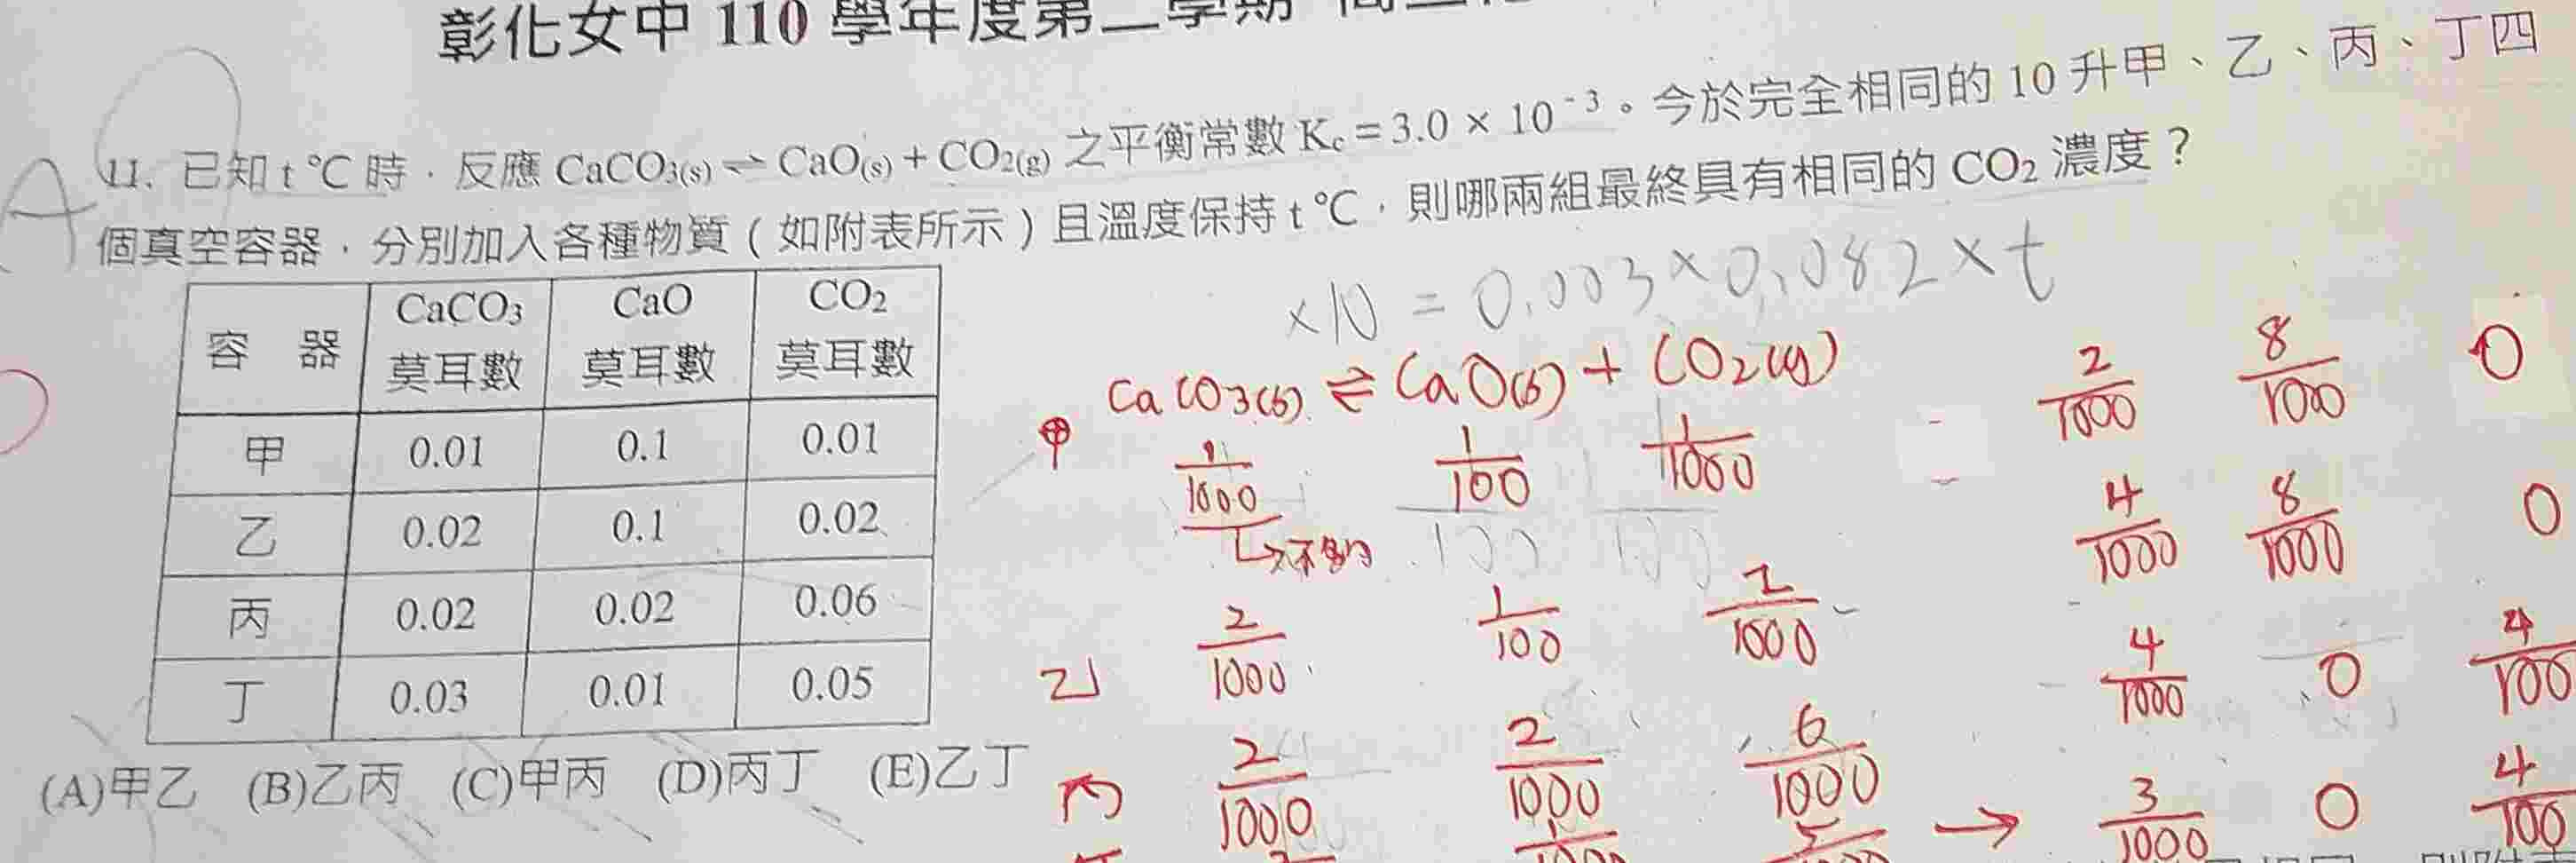 彰化女中 110 學年度第二學期
11. 已知 t ℃ 時，反應 CaCO₃(s) ⇌ CaO(s) + CO₂(g) 之平衡常數 Kc = 3.0 × 10⁻³。今於完全相同的 10 升甲、乙、丙、丁四
個真空容器，分別加入各種物質（如附表所示）且溫度保持 t ℃，則哪兩組最終具有相同的 CO₂ 濃度？
容 器 CaCO₃ 莫耳數 CaO 莫耳數 CO₂ 莫耳數
甲 0.01 0.1 0.01
乙 0.02 0.1 0.02
丙 0.02 0.02 0.06
丁 0.03 0.01 0.05
(A)甲乙 (B)乙丙 (C)甲丙 (D)丙丁 (E)乙丁
A
×10 = 0.003×0.082×t
CaCO₃(s) ⇌ CaO(s) + CO₂(g)
甲 1/1000 1/100 1/1000
→不夠
乙 2/1000 1/100 2/1000
丙 2/1000 2/1000 6/1000
2/1000 8/1000 0
4/1000 8/1000 0
4/1000 0 4/100
→ 3/1000 0 4/100